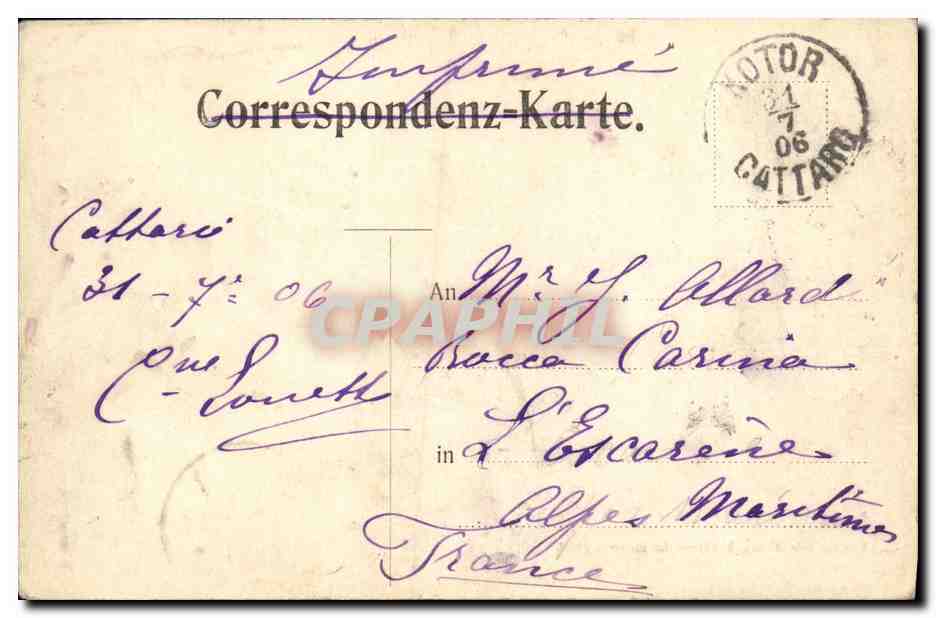 Imprimé
Correspondenz-Karte.
KOTOR
31
7
06
CATTARO
Cattaro
31 - 7 - 06
An Mr J. Allard
Rocca Carina
in L'Escarène
Alpes Maritimes
France
CPAPHIL